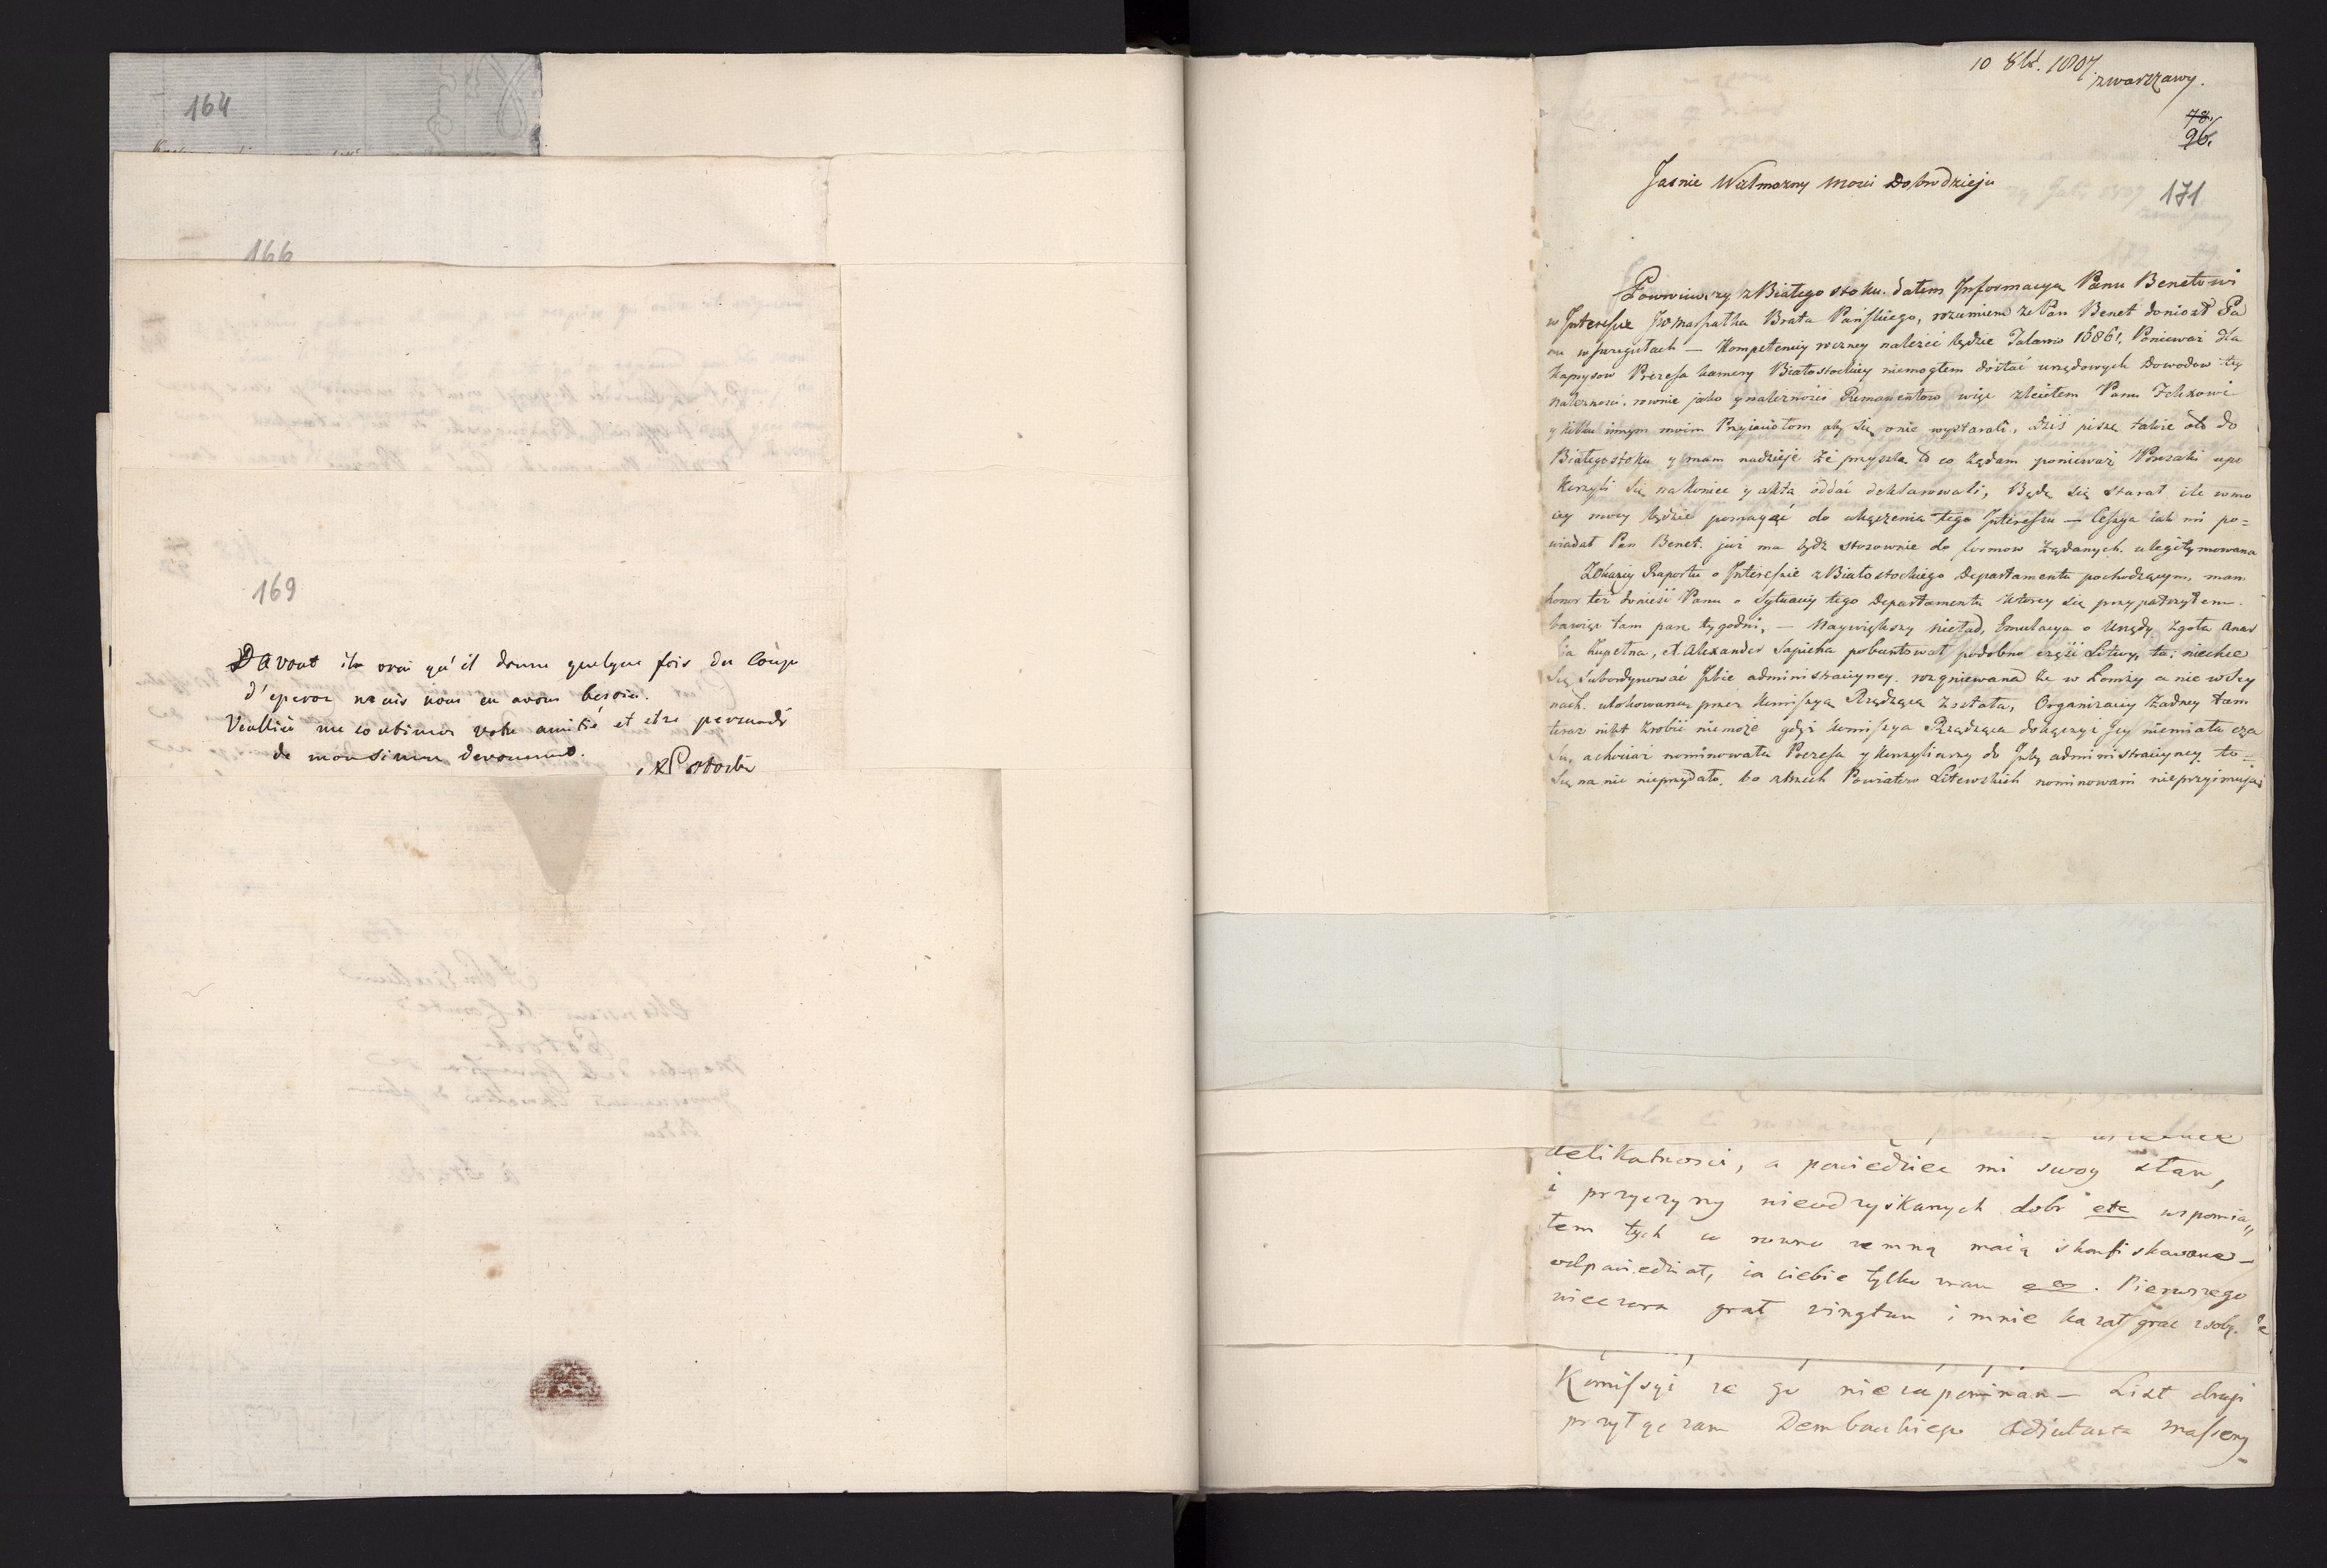 164
166
169
Davout ila vrai qu'il donne quelque fois des Coups
d'eperon mais nous en avons besoin.
Veuillez me continuer votre amitié et etre persuadé
de mon sincere devouement.
10 8br. 1807
zwarszawy.
78.
96.
Jasnie Wielmozny Mosci Dobrodzieju
171
Powrociwszy z Białego stoku. dałem Informacyą Panu Benetowi
w Interesie Brata Pańskiego, rozumiem że Pan Benet doniosł Pa
nu w szczegułach — Kompetencyi roczney należeć będzie Talarow 1686, Ponieważ dla
kaprysow Prezesa kamery Białostockiey niemogłem dostać urzędowych Dowodow tey
należności, rownie jako y należności Remanentow więc zleciłem Panu
y kilku innym moim Przyiaciołom aby się onie wystarali, dziś piszę także do
Białegostoku y mam nadzieje że przyszlą to co żądam ponieważ Prusaki upo
korzyli się nakoniec y akta oddać deklarowali, Będę się starał ile wmo
iey mocy będzie pomagać do ukończenia tego Interessu — Cessya iak mi po=
wiadał Pan Benet. już ma bydź stosownie do formow żądanych ulegitymowana
Zokazyi Raportu o Interessie z Białostockiego Departamentu pochodzącym, mam
honor też donieść Panu o Sytuacyi tego Departamentu ktorey się przypatrzyłem
bawiąc tam parę tygodni, — Naywiększy nieład, Emulacya o Urzędy, zgoła Anar
ia zupełna, X. Alexander Sapieha pobuntował podobno część Litwy, ta niechce
się subordynować Izbie administracyiney. rozgniewana że w Łomży a nie wSey
nach. ulokowaną przez Kommissyą Rządzącą została, Organizacyi żadney tam
teraz nikt zrobić niemoże gdyż Kommissya Rządząca dokończyć jey niemiała cza
su, a chociaż nominowała Prezesa y konsyliarzy do Izby administracyiney, to=
się na nic nieprzydało, bo ztrzech Powiatow Litewskich nominowani nieprzyimują
delikatności, a powiedziec mi swoy stan,
i przyczyny nieodzyskanych dobr etc wspomia„
łem tych co rowno zemną maią skonfiskowane—
odpowiedział, ia ciebie tylko znam. Pierwszego
wieczora grał vingtun i mnie kazał grac zsobą.
Komissyi ze go niezapominam — List drugi
przyłączam Dembowskiego Adiutanta Masseny